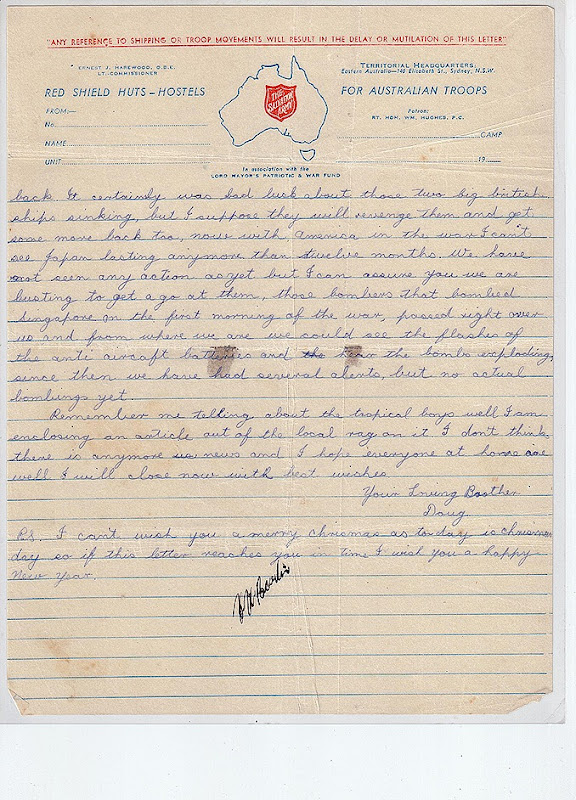 "ANY REFERENCE TO SHIPPING OR TROOP MOVEMENTS WILL RESULT IN THE DELAY OR MUTILATION OF THIS LETTER"
ERNEST J. HAREWOOD, O.B.E.
LT. COMMISSIONER
TERRITORIAL HEADQUARTERS:
Eastern Australia—140 Elizabeth St., Sydney, N.S.W.
RED SHIELD HUTS – HOSTELS
THE SALVATION ARMY
FOR AUSTRALIAN TROOPS
FROM:—
No.
Patron:
RT. HON. WM. HUGHES, P.C.
CAMP
NAME
UNIT
19
In association with the
LORD MAYOR'S PATRIOTIC & WAR FUND
back. It certainly was bad luck about those two big british
ships sinking, but I suppose they will revenge them and get
some more back too, now with America in the war I can't
see Japan lasting anymore than twelve months. We have
not seen any action as yet but I can assure you we are
busting to get a go at them, those bombers that bombed
Singapore on the first morning of the war, passed right over
us and from where we are we could see the flashes of
the anti aircraft batteries and hear the bombs exploding,
since then we have had several alerts, but no actual
bombings yet.
Remember me telling about the tropical boys well I am
enclosing an article out of the local rag on it I don't think
there is anymore news and I hope everyone at home are
well I will close now with best wishes
Your Loving Brother
Doug.
P.S. I can't wish you a merry Chrismas as today is Chrismas
day so if this letter reaches you in time I wish you a happy
New Year.